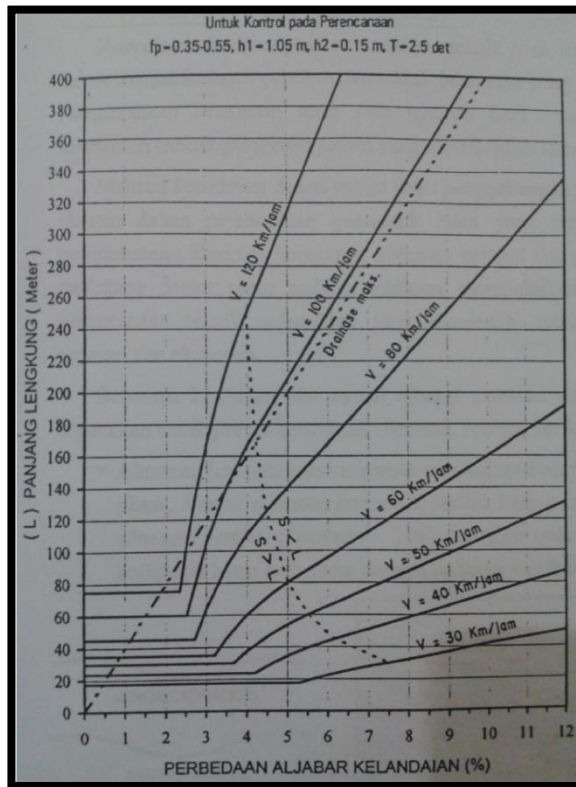 Untuk Kontrol pada Perencanaan
fp=0.35-0.55, h1=1.05 m, h2=0.15 m, T=2.5 det
( L ) PANJANG LENGKUNG ( Meter )
400
380
360
340
320
300
280
260
240
220
200
180
160
140
120
100
80
60
40
20
0
V = 120 Km/jam
V = 100 Km/jam
Drainase maks.
V = 80 Km/jam
V = 60 Km/jam
V = 50 Km/jam
V = 40 Km/jam
V = 30 Km/jam
S < L
S > L
0 1 2 3 4 5 6 7 8 9 10 11 12
PERBEDAAN ALJABAR KELANDAIAN (%)